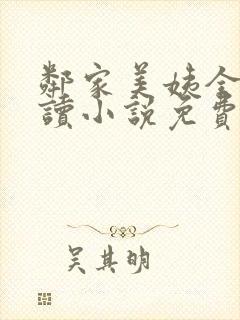 鄰家美姨全
讀小說免費
吴其明